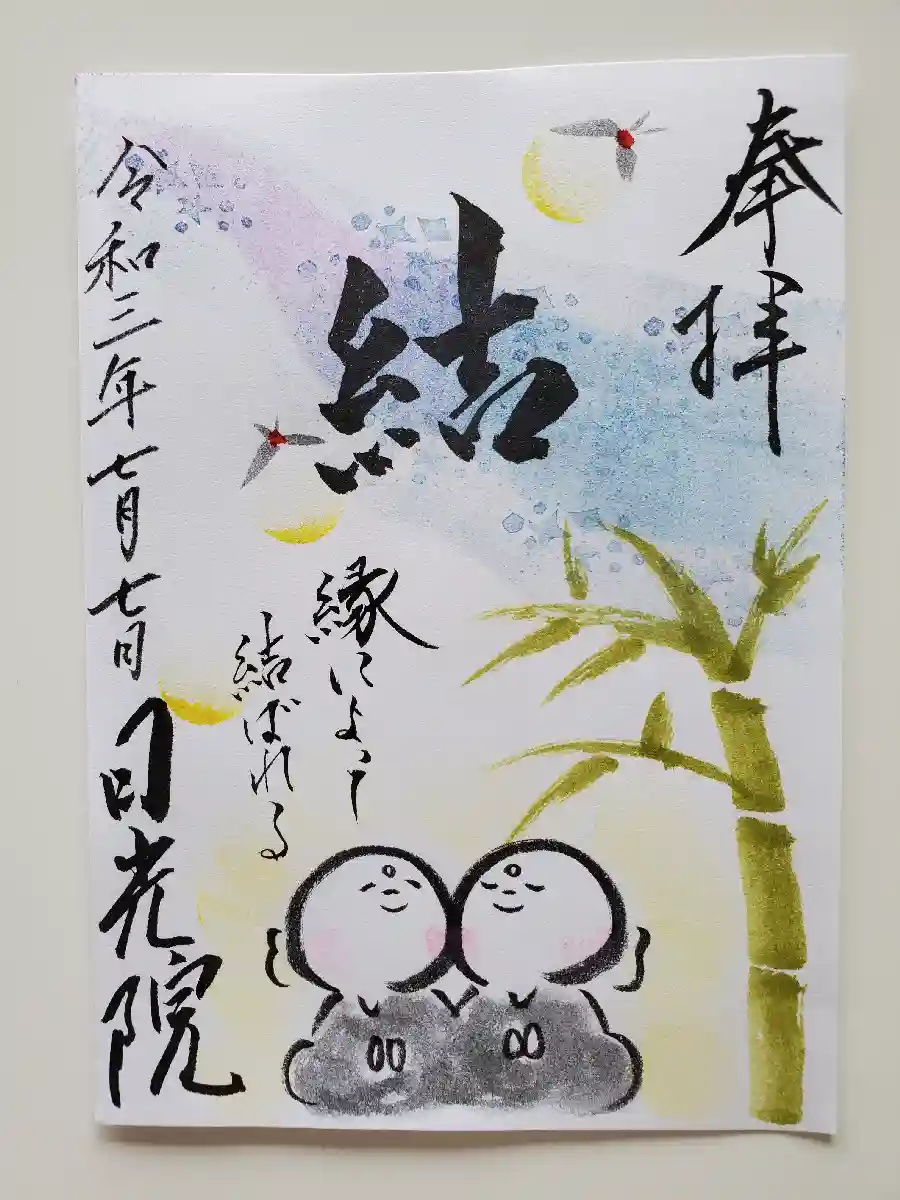 奉拝
結
縁によって
結ばれる
令和三年七月七日
日光院